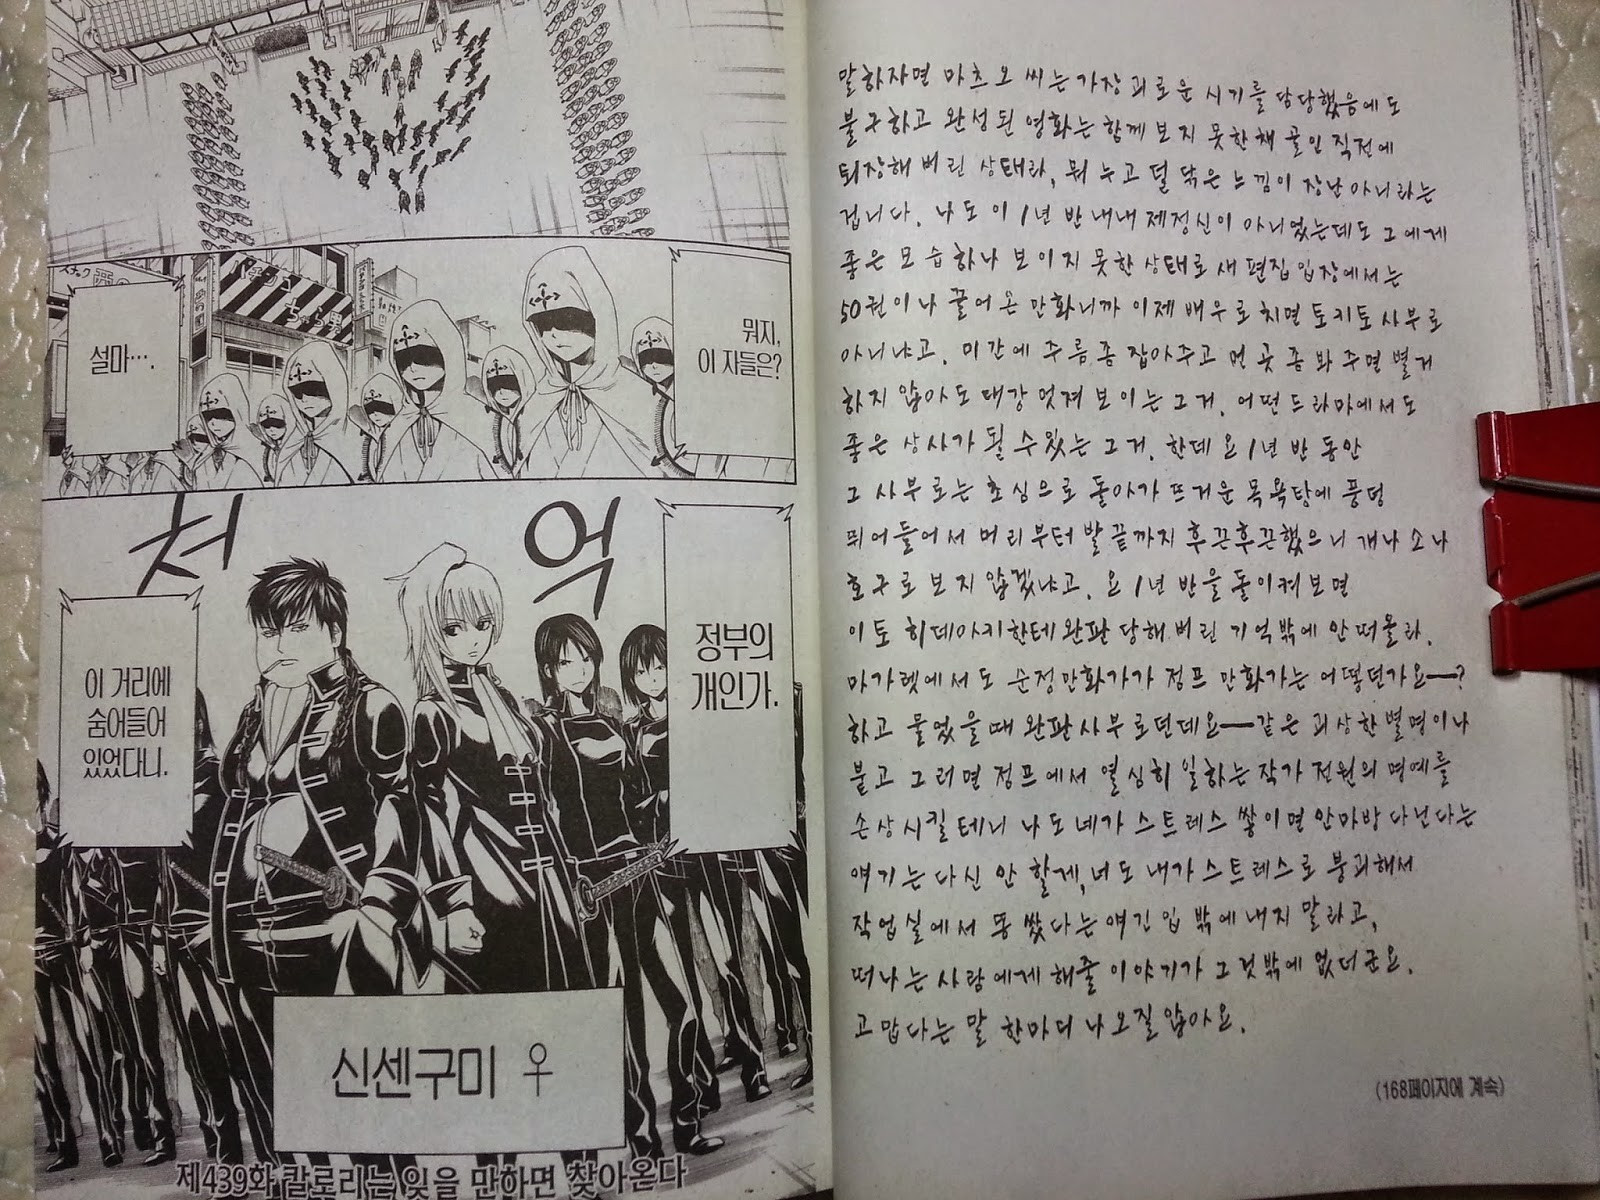 뭐지,
이 자들은?
설마….
처 억
정부의
개인가.
이 거리에
숨어들어
있었다니.
신센구미 ♀
제439화 칼로리는 잊을 만하면 찾아온다
말하자면 마츠오 씨는 가장 괴로운 시기를 담당했음에도
불구하고 완성된 영화는 함께 보지 못한 채 골인 직전에
퇴장해 버린 상태라, 뭐 누고 덜 닦은 느낌이 장난 아니라는
겁니다. 나도 이 1년 반 내내 제정신이 아니었는데도 그에게
좋은 모습 하나 보이지 못한 상태로 새 편집 입장에서는
50권이나 끌어 온 만화니까 이제 배우로 치면 토키토 사부로
아니냐고. 미간에 주름 좀 잡아주고 먼 곳 좀 봐 주면 별거
하지 않아도 대강 멋져 보이는 그거. 어떤 드라마에서도
좋은 상사가 될 수 있는 그거. 한데 요 1년 반 동안
그 사부로는 초심으로 돌아가 뜨거운 목욕탕에 풍덩
뛰어들어서 머리부터 발끝까지 후끈후끈했으니 개나 소나
호구로 보지 않겠냐고. 요 1년 반을 돌이켜 보면
이토 히데아키한테 완판 당해 버린 기억밖에 안 떠올라.
마가렛에서도 순정만화가가 점프 만화가는 어떻던가요ㅡ?
하고 물었을 때 완판사부로던데요ㅡ같은 괴상한 별명이나
붙고 그러면 점프에서 열심히 일하는 작가 전원의 명예를
손상시킬 테니 나도 네가 스트레스 쌓이면 안마방 다닌다는
얘기는 다신 안 할게, 너도 내가 스트레스로 붕괴해서
작업실에서 똥 쌌다는 얘긴 입 밖에 내지 말라고,
떠나는 사람에게 해줄 이야기가 그것밖에 없더군요.
고맙다는 말 한마디 나오질 않아요.
(168페이지에 계속)